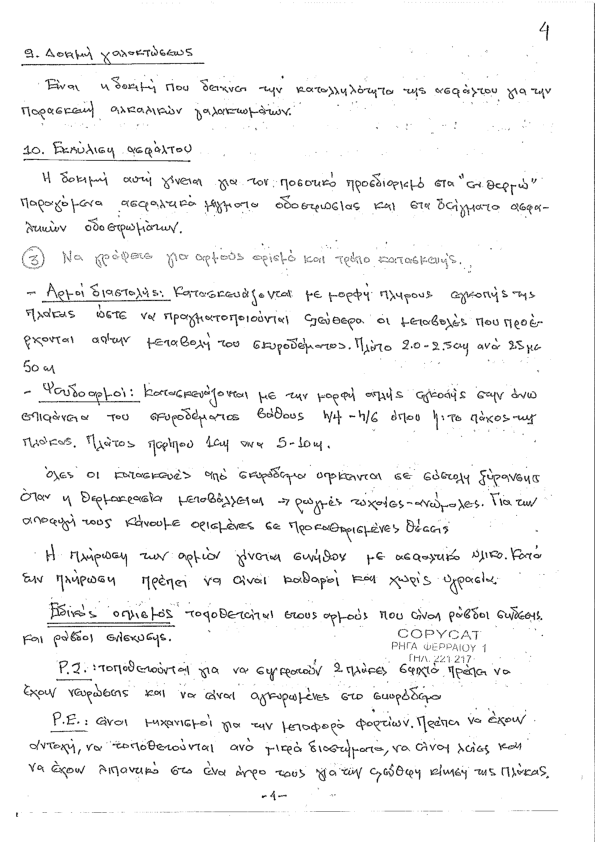 4
9. Δοκιμή γαλακτώσεως
Είναι η δοκιμή που δείχνει την καταλληλότητα της ασφάλτου για την
παρασκευή αλκαλικών γαλακτωμάτων.
10. Εκχύλιση ασφάλτου
Η δοκιμή αυτή γίνεται για τον ποσοτικό προσδιορισμό στα "εν θερμώ"
παραγόμενα ασφαλτικά μίγματα οδοστρωσίας και στα δείγματα ασφα-
λτικών οδοστρωμάτων.
③ Να γράψεις για αρμούς ορισμό και τρόπο κατασκευής.
- Αρμοί διαστολής: Κατασκευάζονται με μορφή πλήρους εγκοπής της
πλάκας ώστε να πραγματοποιούνται ελεύθερα οι μεταβολές που προέ-
ρχονται απ'την μεταβολή του σκυροδέματος. Πλάτο 2.0-2.5cm ανά 25 με
50m
- Ψευδοαρμοί: κατασκευάζονται με την μορφή απλής εγκοπής στην άνω
επιφάνεια του σκυροδέματος βάθους h/4-h/6 όπου h: το πάχος της
πλάκας. Πλάτος περίπου 1cm ανα 5-10m.
Όλες οι κατασκευές από σκυρόδεμα υπόκεινται σε συστολή ξήρανσης
όταν η θερμοκρασία μεταβάλλεται → ρωγμές τυχαίες-ανώμαλες. Για την
αποφυγή τους κάνουμε ορισμένες σε προκαθορισμένες θέσεις
Η πλήρωση των αρμών γίνεται συνήθως με ασφαλτικό υλικο. Κατά
την πλήρωση πρέπει να είναι καθαροί και χωρίς υγρασία.
Ειδικός οπλισμός τοποθετείται στους αρμούς που είναι ράβδοι σύνδεσης
και ράβδοι ολίσθησης.
COPYCAT
ΡΗΓΑ ΦΕΡΡΑΙΟΥ 1
ΤΗΛ. 221 217
Ρ.Σ.: τοποθετούνται για να συγκρατούν 2 πλάκες σφιχτά πρέπει να
έχουν νευρώσεις και να είναι αγκυρωμένες στο σκυρόδεμα
Ρ.Ε.: είναι μηχανισμοί για την μεταφορά φορτίων. Πρέπει να έχουν
αντοχή, να τοποθετούνται ανά μικρά διαστήματα, να είναι λείες και
να έχουν λιπαντικό στο ένα άκρο τους για την ελεύθερη κίνηση της πλάκας.
-4-